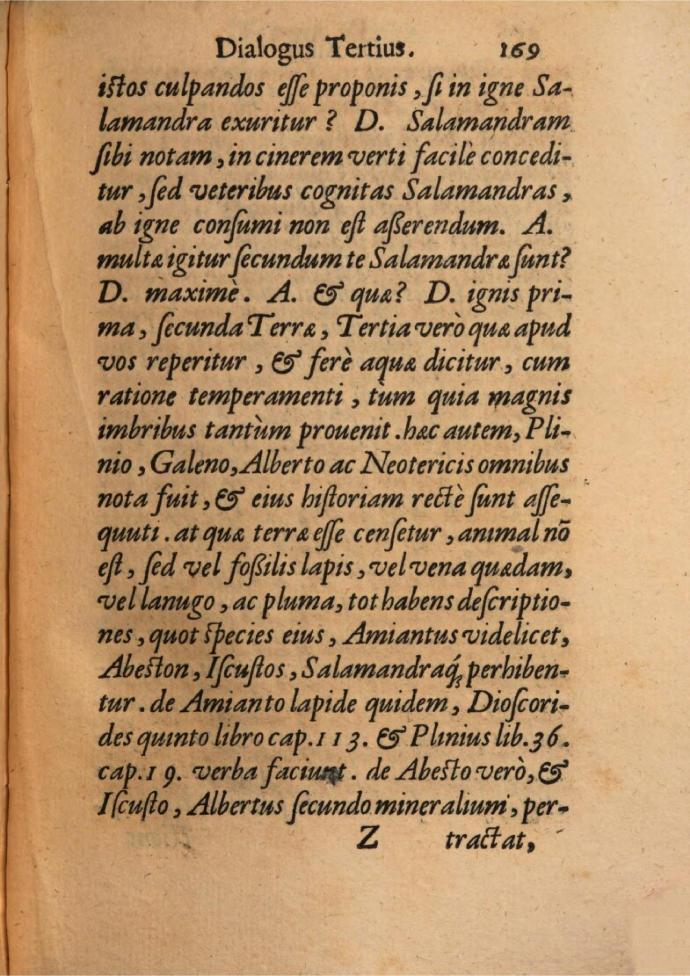 Dialogus Tertius. 169
iſtos culpandos eſſe proponis, ſi in igne Sa-
lamandra exuritur? D. Salamandram
ſibi notam, in cinerem verti facilè concedi-
tur, ſed veteribus cognitas Salamandras,
ab igne conſumi non eſt aßerendum. A.
multæ igitur ſecundum te Salamandræ ſunt?
D. maximè. A. & quæ? D. ignis pri-
ma, ſecunda Terræ, Tertia verò quæ apud
vos reperitur, & ferè aquæ dicitur, cum
ratione temperamenti, tùm quia magnis
imbribus tantùm prouenit. hæc autem, Pli-
nio, Galeno, Alberto ac Neotericis omnibus
nota fuit, & eius hiſtoriam rectè ſunt aſſe-
quuti. at quæ terræ eſſe cenſetur, animal nō
eſt, ſed vel foßilis lapis, vel vena quædam,
vel lanugo, ac pluma, tot habens deſcriptio-
nes, quot ſpecies eius, Amiantus videlicet,
Abeſton, Iſcuſtos, Salamandraq́; perhiben-
tur. de Amianto lapide quidem, Dioſcori-
des quinto libro cap. 113. & Plinius lib. 36.
cap. 19. verba faciunt. de Abeſto verò, &
Iſcuſto, Albertus ſecundo mineralium, per-
Z tractat,